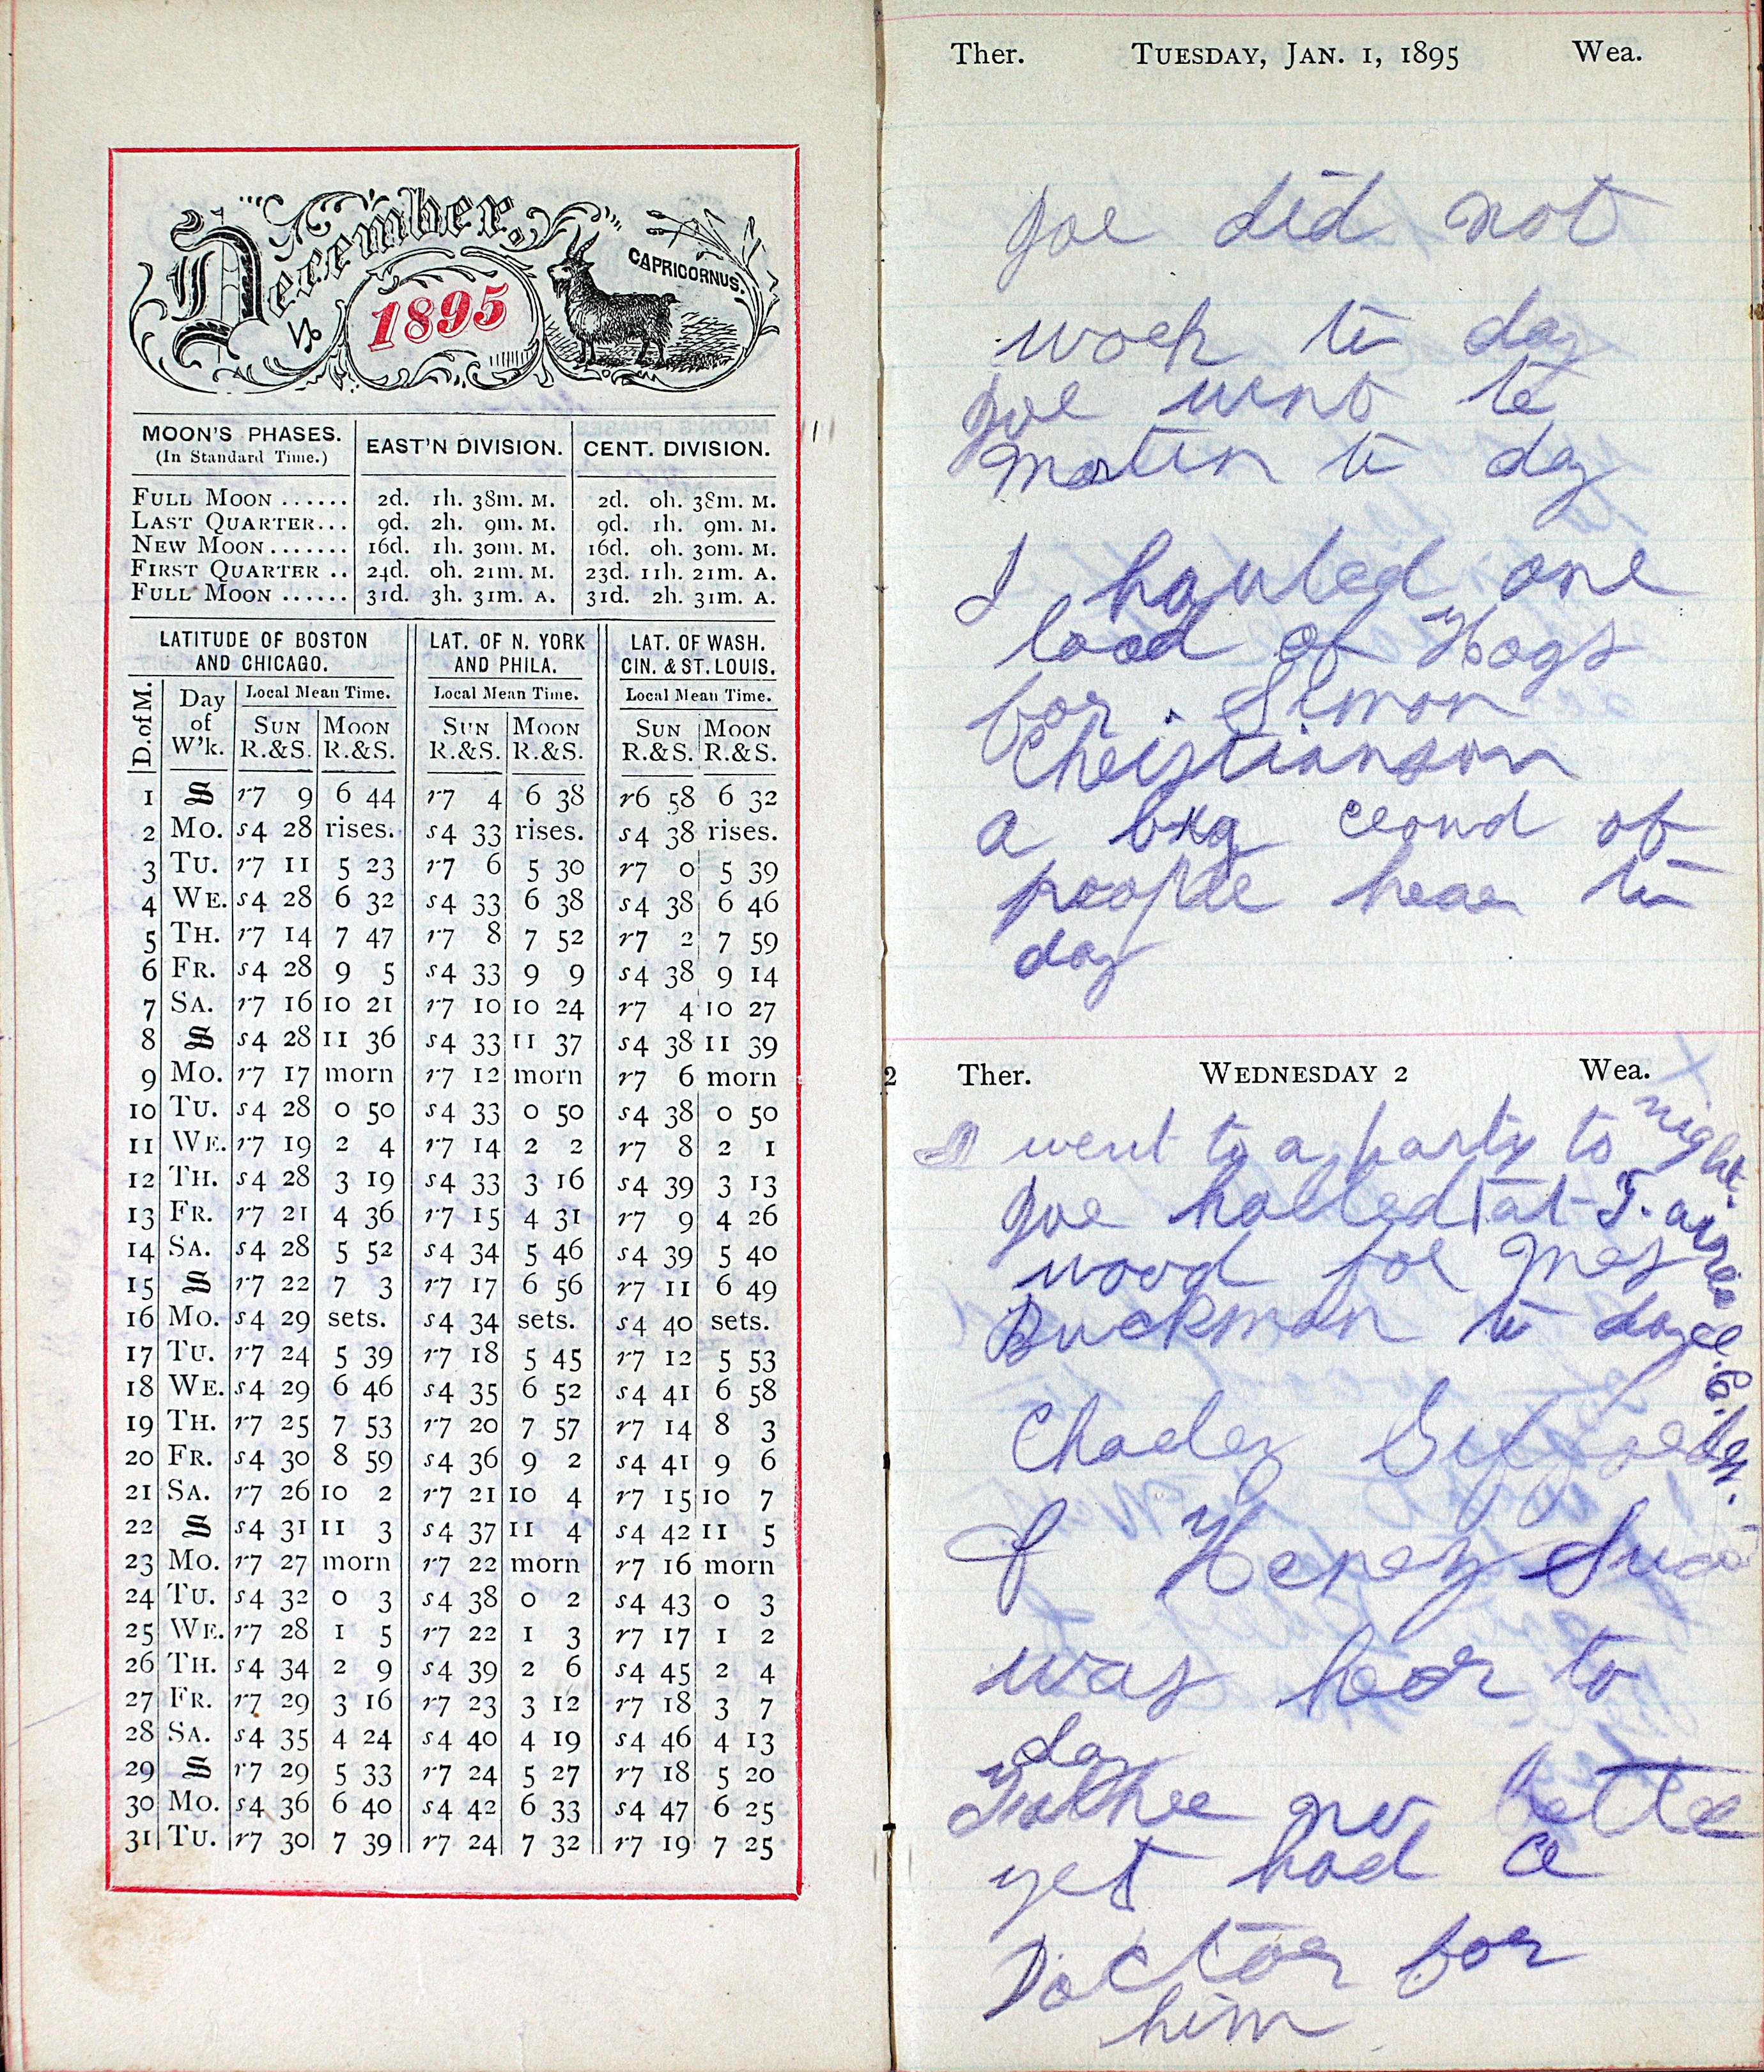 December.
1895
CAPRICORNUS.
MOON'S PHASES. (In Standard Time.) EAST'N DIVISION. CENT. DIVISION.
FULL MOON ...... 2d. 1h. 38m. M. 2d. 0h. 38m. M.
LAST QUARTER... 9d. 2h. 9m. M. 9d. 1h. 9m. M.
NEW MOON....... 16d. 1h. 30m. M. 16d. 0h. 30m. M.
FIRST QUARTER .. 24d. 0h. 21m. M. 23d. 11h. 21m. A.
FULL MOON ...... 31d. 3h. 31m. A. 31d. 2h. 31m. A.
LATITUDE OF BOSTON AND CHICAGO. LAT. OF N. YORK AND PHILA. LAT. OF WASH. CIN. & ST. LOUIS.
D. of M. Day of W'k. Local Mean Time. Local Mean Time. Local Mean Time.
SUN R.&S. MOON R.&S. SUN R.&S. MOON R.&S. SUN R.&S. MOON R.&S.
1 S r7 9 6 44 r7 4 6 38 r6 58 6 32
2 MO. s4 28 rises. s4 33 rises. s4 38 rises.
3 TU. r7 11 5 23 r7 6 5 30 r7 0 5 39
4 WE. s4 28 6 32 s4 33 6 38 s4 38 6 46
5 TH. r7 14 7 47 r7 8 7 52 r7 2 7 59
6 FR. s4 28 9 5 s4 33 9 9 s4 38 9 14
7 SA. r7 16 10 21 r7 10 10 24 r7 4 10 27
8 S s4 28 11 36 s4 33 11 37 s4 38 11 39
9 MO. r7 17 morn r7 12 morn r7 6 morn
10 TU. s4 28 0 50 s4 33 0 50 s4 38 0 50
11 WE. r7 19 2 4 r7 14 2 2 r7 8 2 1
12 TH. s4 28 3 19 s4 33 3 16 s4 39 3 13
13 FR. r7 21 4 36 r7 15 4 31 r7 9 4 26
14 SA. s4 28 5 52 s4 34 5 46 s4 39 5 40
15 S r7 22 7 3 r7 17 6 56 r7 11 6 49
16 MO. s4 29 sets. s4 34 sets. s4 40 sets.
17 TU. r7 24 5 39 r7 18 5 45 r7 12 5 53
18 WE. s4 29 6 46 s4 35 6 52 s4 41 6 58
19 TH. r7 25 7 53 r7 20 7 57 r7 14 8 3
20 FR. s4 30 8 59 s4 36 9 2 s4 41 9 6
21 SA. r7 26 10 2 r7 21 10 4 r7 15 10 7
22 S s4 31 11 3 s4 37 11 4 s4 42 11 5
23 MO. r7 27 morn r7 22 morn r7 16 morn
24 TU. s4 32 0 3 s4 38 0 2 s4 43 0 3
25 WE. r7 28 1 5 r7 22 1 3 r7 17 1 2
26 TH. s4 34 2 9 s4 39 2 6 s4 45 2 4
27 FR. r7 29 3 16 r7 23 3 12 r7 18 3 7
28 SA. s4 35 4 24 s4 40 4 19 s4 46 4 13
29 S r7 29 5 33 r7 24 5 27 r7 18 5 20
30 MO. s4 36 6 40 s4 42 6 33 s4 47 6 25
31 TU. r7 30 7 39 r7 24 7 32 r7 19 7 25
Ther. TUESDAY, JAN. 1, 1895 Wea.
Joe did not
work to day
Joe went to
Martin to day
I hauled one
load of Hogs
for Simon
Christianson
a big crowd of
people hear to
day
2 Ther. WEDNESDAY 2 Wea.
I went to a party to night.
Joe halled at T.
wood for Mrs
Buckman to day
Charles
& Henry
was hear to
day
Father no better
yet had a
Doctor for
him